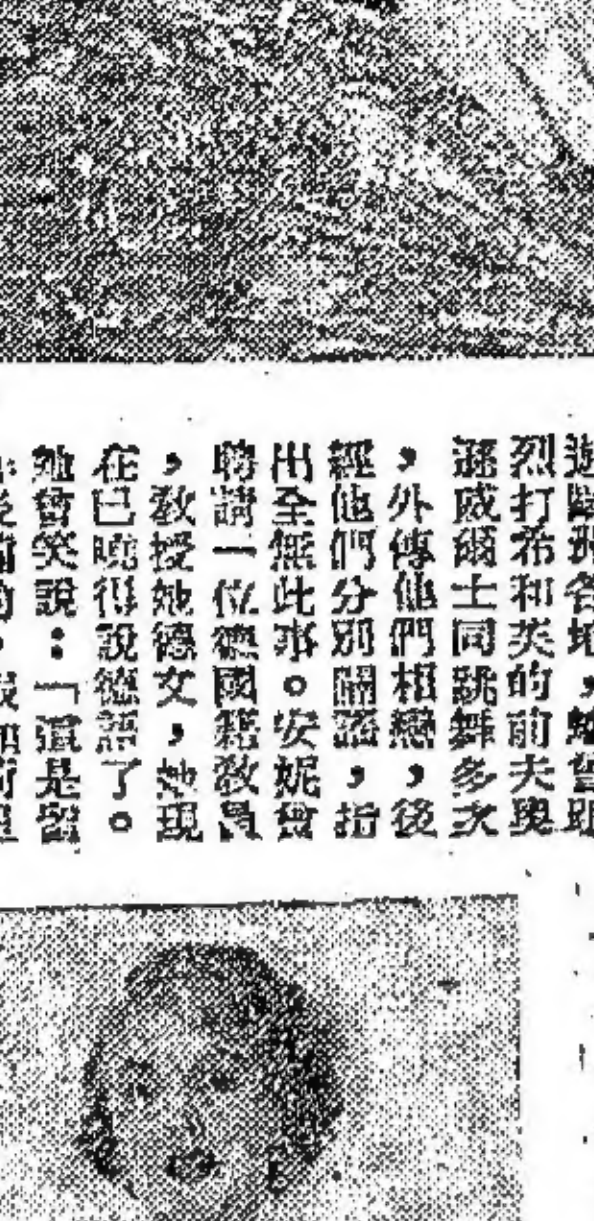 各地，她曾跟
烈打希和英的前夫與
遜威爾士同跳舞多次
，外傳他們相戀，後
經他們分別闢謠，指
出全無此事。安妮曾
聘請一位德國籍教員
，教授她德文，她現
在已曉得說德語了。
她曾笑說：「這是留